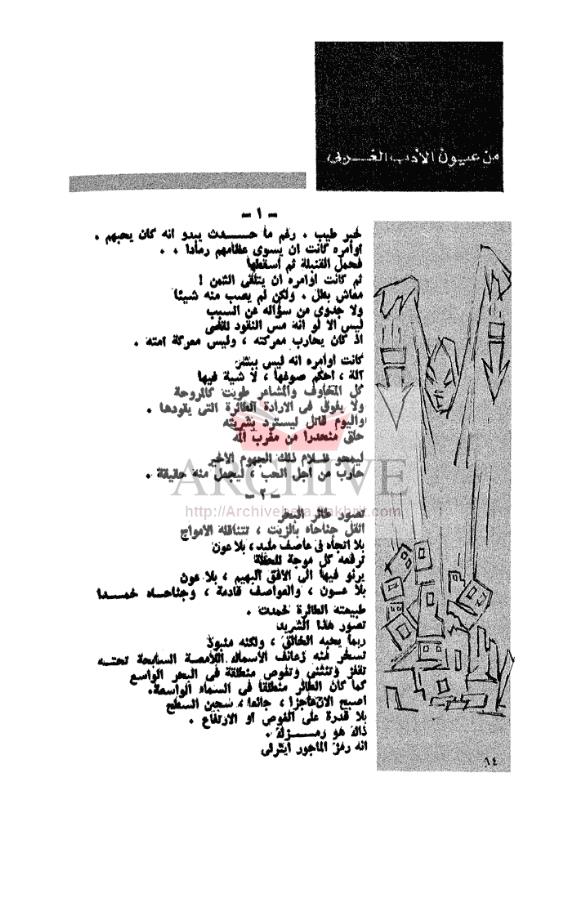 من عيون الأدب الغربى
- ١ -
خبر طيب . رغم ما حــــدث يبدو انه كان يحبهم .
اوامره كانت ان يسوى عظامهم رمادا . .
فحمل القنبلة ثم أسقطها
ثم كانت اوامره ان يتلقى الثمن !
معاش بطل . ولكن لم يصب منه شيئا
ولا جدوى من سؤاله عن السبب
ليس الا لو انه مس النقود
اذ كان يحارب معركته ، وليس معركة امته .
كانت اوامره انه ليس ببشر
آلة ، احكم صوغها ، لا شية فيها
كل المخاوف والمشاعر طويت كالمروحة
ولا يفوق فى الارادة الطائرة التى يقودها .
واليوم قاتل ليسترد بشريته
حلق منحدرا من مقرب الله
ليمحو ظلام ذلك الجهوم الأخير
حارب من أجل الحب ، ليجعل منه حقيقة .
- ٢ -
تصور طائر البحر
اثقل جناحاه بالزيت ، تتناقله الامواج
بلا اتجاه فى عاصف ملبد ، بلا عون
ترفعه كل موجة للحظة
يرنو فيها الى الأفق البهيم ، بلا عون
بلا عــون ، والعواصف قادمة ، وجناحــاه خمــدا
طبيعته الطائرة خمدت .
تصور هذا الشريد
ربما يحبه الخالق ، ولكنه منبوذ
تسخر منه زعانف الأسماك اللامعة السابحة تحتــه
تقفز وتنثنى وتغوص منطلقة فى البحر الواسع
كما كان الطائر منطلقا فى السماء الواسعة .
أصبح الآن عاجزا ، جائعا ، سجين السطح
بلا قدرة على الغوص او الارتفاع .
ذاك هو رمــــزك .
انه رمز الماجور ايثرلى
١٤
ARCHIVE
http://Archivebeta.Sakhrit.com